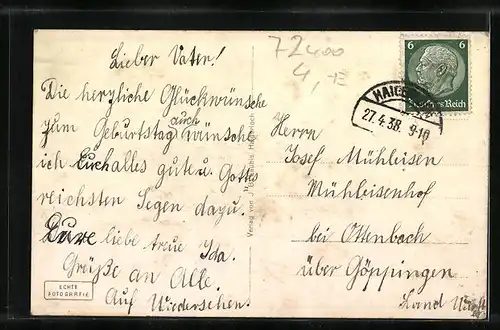 72400
4,-E
Lieber Vater!
Die herzliche Glückwünsche
zum Geburtstag auch wünsche
ich Euch alles gute u. Gottes
reichsten Segen dazu.
Eure liebe treue Ida.
Grüße an Alle.
Auf Wiedersehen.
ECHTE
FOTOGRAFIE
Verlag von
6 6
Deutsches Reich
HAIGER
27.4.38. 9-10
Herrn
Josef Mühleisen
Mühleisenhof
bei Ottenbach
über Göppingen
Land